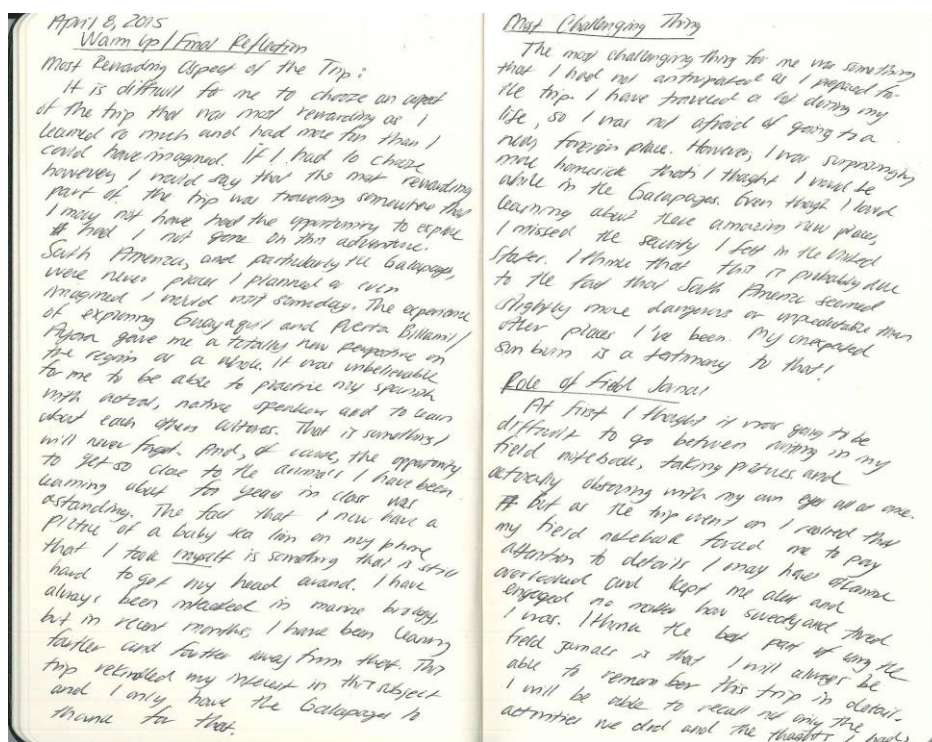 April 8, 2015
Warm Up/Final Reflection
Most Rewarding Aspect of the Trip:
It is difficult for me to choose an aspect
of the trip that was most rewarding as I
learned so much and had more fun than I
could have imagined. If I had to choose
however, I would say that the most rewarding
part of the trip was traveling somewhere that
I may not have had the opportunity to explore
had I not gone on this adventure.
South America, and particularly the Galapagos,
were never places I planned or even
imagined I would visit someday. The experience
of exploring Guayaquil and Puerta Billamil/
Ayora gave me a totally new perspective on
the region as a whole. It was unbelievable
for me to be able to practice my spanish
with actual, native speakers and to learn
about each others cultures. That is something I
will never forget. And, of course, the opportunity
to get so close to the animals I have been
learning about for years in class was
astanding. The fact that I now have a
picture of a baby sea lion on my phone
that I took myself is something that is still
hard to get my head around. I have
always been interested in marine biology,
but in recent months, I have been leaning
farther and farther away from that. This
trip rekindled my interest in this subject
and I only have the Galapagos to
thank for that.
Most Challenging Thing
The most challenging thing for me was something
that I had not anticipated as I prepared for
the trip. I have traveled a lot during my
life, so I was not afraid of going to a
new, foreign place. However, I was surprisingly
more homesick that I thought I would be
while in the Galapagos. Even though I loved
learning about these amazing new places,
I missed the security I felt in the United
States. I think that this is probably due
to the fact that South America seemed
slightly more dangerous or unpredictable than
other places I've been. My unexpected
sun burn is a testimony to that!
Role of Field Journal
At first I thought it was going to be
difficult to go between writing in my
field notebook, taking pictures and
actually observing with my own eyes all at once.
But as the trip went on I realized that
my field notebook forced me to pay
attention to details I may have otherwise
overlooked and kept me alert and
engaged no matter how sweaty and tired
I was. I think the best part of using the
field journals is that I will always be
able to remember this trip in detail.
I will be able to recall not only the
activities we did and the thoughts I had,